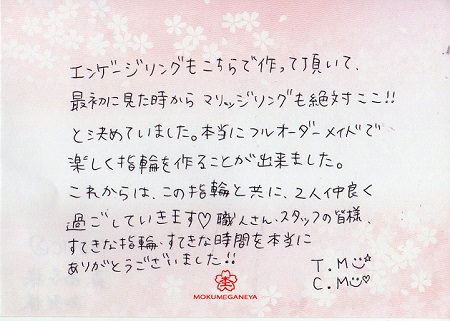 エンゲージリングもこちらで作って頂いて、
最初に見た時から マリッジリングも絶対ここ!!
と決めていました。本当にフルオーダーメイドで
楽しく指輪を作ることが出来ました。
これからは、この指輪と共に、2人仲良く
過ごしていきます♡ 職人さん・スタッフの皆様、
すてきな指輪・すてきな時間を本当に
ありがとうございました!!
T.M
C.M
MOKUMEGANEYA